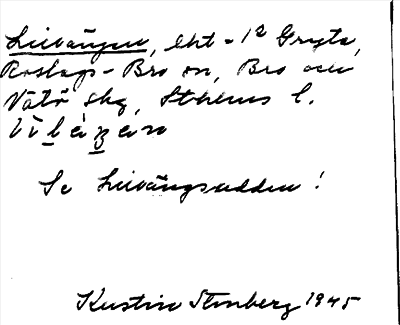 Lillängen, lht - 1² Gryta,
Roslags-Bro sn, Bro och
Vätö skg, Sthlms l.
Se Lillängsudden!
Kerstin Stenberg 1945